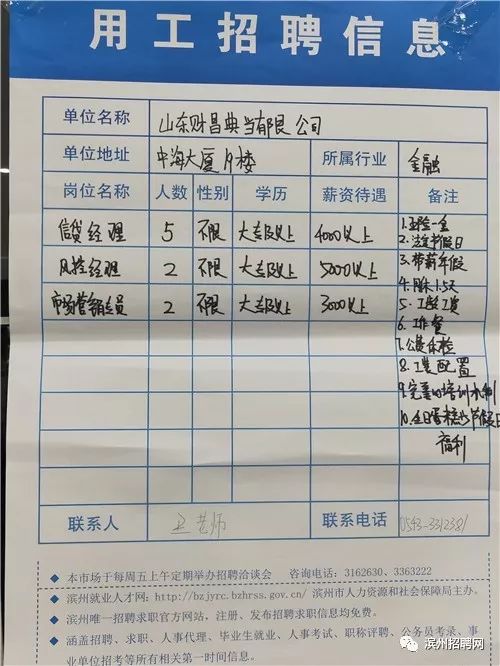 用工招聘信息
单位名称 山东财昌典当有限公司
单位地址 中海大厦19楼 所属行业 金融
岗位名称 人数 性别 学历 薪资待遇 备注
信贷经理 5 不限 大专及以上 4000以上
风控经理 2 不限 大专及以上 5000以上
市场营销专员 2 不限 大专及以上 3000以上
1.五险一金
2.法定节假日
3.带薪年假
4.周休1.5天
5.工龄工资
6.工作餐
7.公费体检
8.工装配置
9.完善的培训机制
10.生日蛋糕与节假日
福利
联系人 联系电话 0543-3312381
◆ 本市场于每周五上午定期举办招聘洽谈会 咨询电话:3162630、3363222
◆ 滨州就业人才网:http://bzjyrc.bzhrss.gov.cn/ 滨州市人力资源和社会保障局主办。
◆ 滨州唯一招聘求职官方网站,注册、发布招聘求职信息均免费。
◆ 涵盖招聘、求职、人事代理、毕业生就业、人事考试、职称评聘、公务员考录、事
业单位招考等所有相关第一时间信息。
滨州招聘网